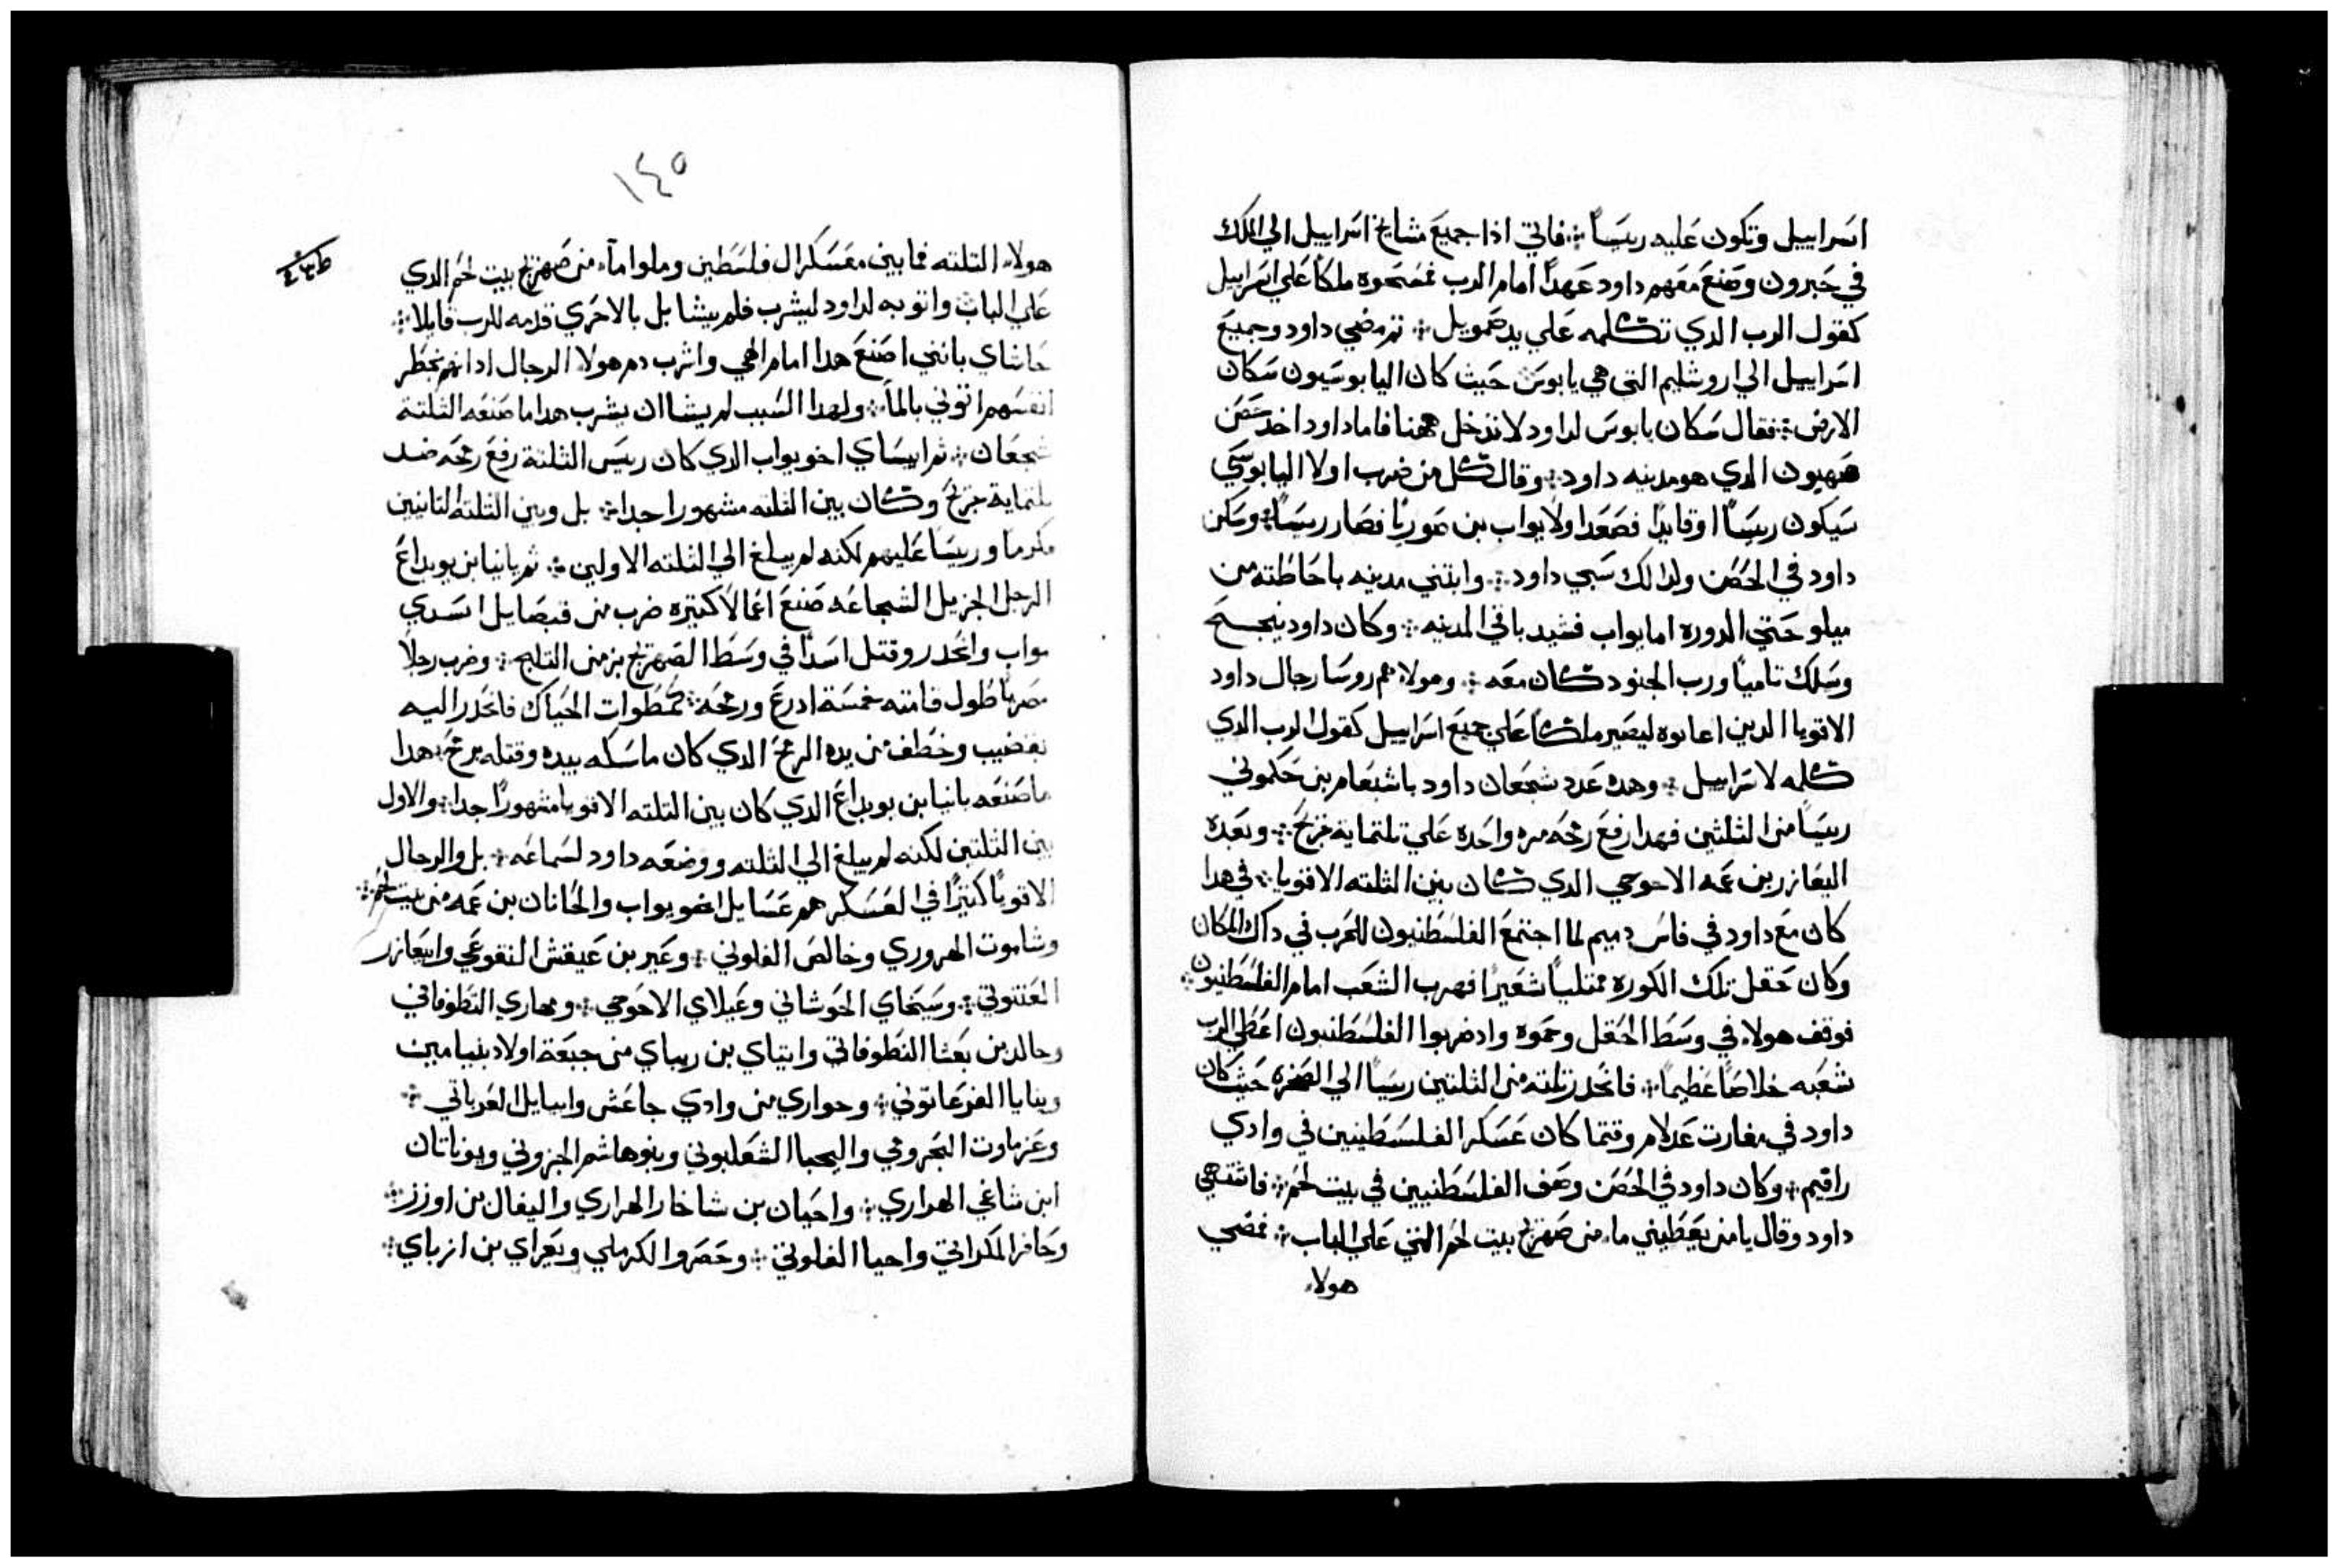 اسراييل وتكون عليه ريسًا ؞ فاتي اذا جميع مشايخ اسراييل الي الملك
في حبرون وصنع معهم داود عهدًا امام الرب فمسحوه ملكًا علي اسراييل
كقول الرب الدي تكلمه علي يد صمويل ؞ تم مضي داود وجميع
اسراييل الي اروشليم التي هي يابوس حيث كان اليابوسيون سكان
الارض ؞ فقال سكان يابوس لداود لا تدخل ههنا فاما داود اخد حصن
صهيون الدي هو مدينه داود ؞ وقال كل من ضرب اولا اليابوسي
سيكون ريسًا او قايدًا فصعد اولًا يواب بن صوريا فصار ريسًا ؞ وسكن
داود في الحصن ولدالك سمي داود ؞ وابتني مدينه باحاطته من
ميلو حتي الدوره اما يواب فشيد باقي المدينه ؞ وكان داود ينجح
وسلك ناميًا ورب الجنود كان معه ؞ وهولاء هم روسا رجال داود
الاقويا الدين اعانوه ليصير ملكًا علي جميع اسراييل كقول الرب الدي
كلمه لاسراييل ؞ وهده عدد شجعان داود باشبعام بن حكموني
ريسًا من الثلثين فهدا رفع رمحه مره واحده علي تلتماية جريح ؞ وبعده
اليعازر بن عمه الاحوحي الدي كان بين الثلثه الاقويا ؞ في هدا
كان مع داود في فاس دميم لما اجتمع الفلسطنيون للحرب في داك المكان
وكان حقل تلك الكوره ممتليًا شعيرًا فهرب الشعب امام الفلسطنيون ؞
فوقف هولاء في وسط الحقل وحموه واد ضربوا الفلسطنيون اعطي الرب
شعبه خلاصًا عظيمًا ؞ فانحدر تلته من الثلثين ريسًا الي الصخره حيث كان
داود في مغارت عدلام وقتما كان عسكر الفلسطينين في وادي
راقيم ؞ وكان داود في الحصن وصف الفلسطنيين في بيت لحم ؞ فاشتهي
داود وقال يا من يعطيني ماء من صهريج بيت لحم التي علي الباب ؞ فمضي
هولاء
١٤٥
هولاء التلته فيما بين معسكر ال فلسطين وملوا ماء من صهريج بيت لحم الدي
علي الباب واتو به لداود ليشرب فلم يشا بل بالاحري قدمه للرب قايلًا ؞
حاشاي بانني اصنع هدا امام الهي واشرب دم هولاء الرجال ادانهم بخطر
انفسهم اتوني بالما ؞ ولهدا السبب لم يشا ان يشرب هدا ما صنعه الثلتة
شجعان ؞ ثم ابيساي اخو يواب الدي كان ريس الثلتة رفع رمحه ضد
تلتماية جريح وكان بين الثلته مشهورا جدا ؞ بل وبين الثلته التانيين
مكرمًا وريسًا عليهم لكنه لم يبلغ الي الثلته الاولين ؞ ثم بانيا بن يويداع
الرجل الجزيل الشجاعه صنع اعمالًا كتيره ضرب من قبصايل اسدي
مواب وانحدر وقتل اسدًا في وسط الصهريج بزمن التلج ؞ وضرب رجلًا
مصريًا طول قامته خمسة ادرع ورمحه كمطوات الحياك فانحدر اليه
بقضيب وخطف من يده الرمح الدي كان ماسكه بيده وقتله برمحه هدا
ما صنعه بانيا بن يويداع الدي كان بين التلته الاقويا مشهورًا جدا ؞ والاول
بين الثلتين لكنه لم يبلغ الي الثلته ووضعه داود لسماعه ؞ بل والرجال
الاقويا كتيرًا في العسكر هم عسايل اخو يواب والحانان بن عمه من بيت لحم ؞
وشاموت الهروري وخالص الفلوني ؞ وعير بن عيقش التقوعي وابيعازر
العنتوتي ؞ وسبخاي الحوشاتي وعيلاي الاحوحي ؞ ومهاري النطوفاتي
وحالد بن بعنا النطوفاتي وايتاي بن ريباي من جبعة اولاد بنيامين
وبنايا الفرعاتوني ؞ وحواري من وادي جاعش وابيايل العرباتي ؞
وعزماوت البحرومي واليحبا الشعلبوني وبنو هاشم الجزوني ويوناتان
ابن شاغي الهراري ؞ واحيان بن شاخار الهراري واليفال بن اورز ؞
وحافر المكراتي واحيا الفلوني ؞ وحصروا الكرملي ونعراي بن ازباي ؞